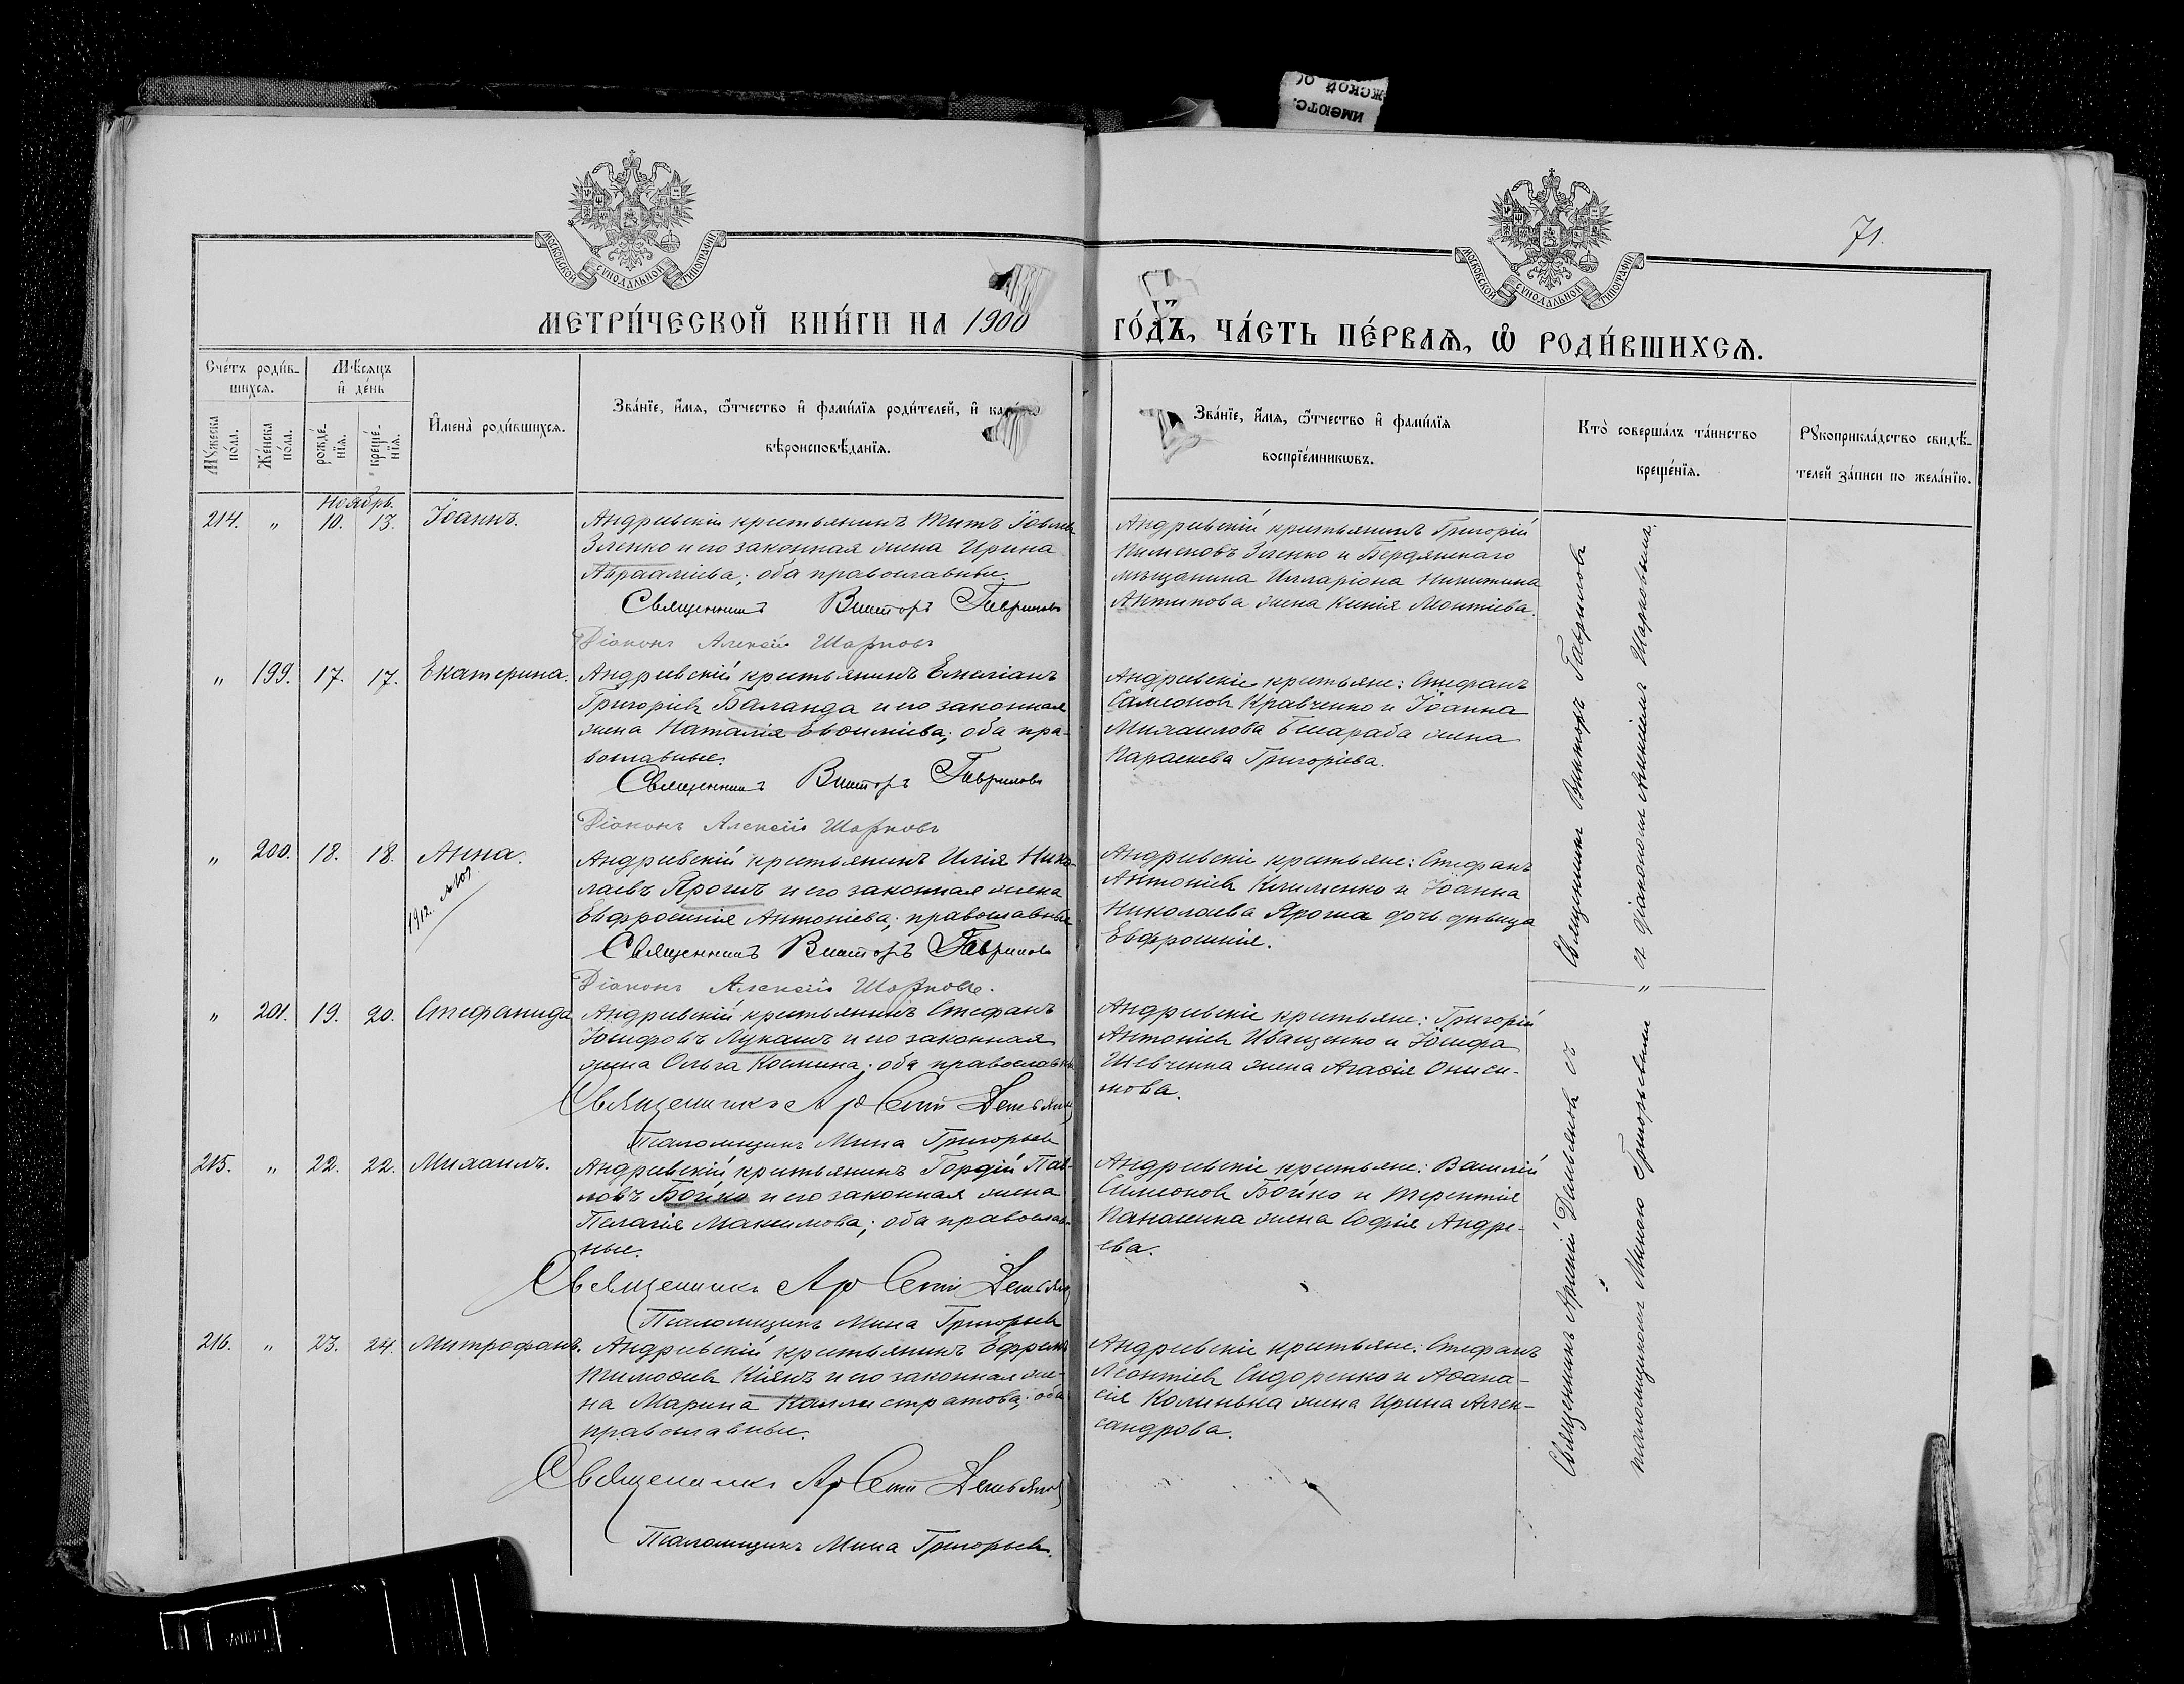 ИМѢЮТС.
ЖСКОЙ
71.
МОСКОВСКОЙ СУНОДАЛЬНОЙ ТИПОГРАФІИ
МОСКОВСКОЙ СУНОДАЛЬНОЙ ТИПОГРАФІИ
МЕТРИ́ЧЕСКОЙ КНИ́ГИ НА 1900 ГО́ДЪ, ЧА́СТЬ ПЕ́РВАѦ, Ѡ҆ РОДИ́ВШИХСѦ.
Сче́тъ роди́в-
шихсѧ.
Мѣ́сѧцъ
и҆ де́нь
Мꙋ́жеска по́ла.
Же́нска по́ла.
рожде́-
нїѧ.
креще́-
нїѧ.
И҆мена̀ роди́вшихсѧ.
Зва́нїе, и҆́мѧ, ѻ҆́тчество и҆ фами́лїѧ роди́телей, и҆
вѣроисповѣ́данїѧ.
Зва́нїе, и҆́мѧ, ѻ҆́тчество и҆ фами́лїѧ
воспрїе́мникѡвъ.
Кто̀ соверша́лъ та́инство
креще́нїѧ.
Рꙋкоприкла́дство свидѣ́-
телей за́писи по жела́нїю.
Ноябрь.
214. „ 10. 13. Іоаннъ.
Андреевскій крестьянинъ Титъ Іовлевъ
Зленко и его законная жена Ирина
Авраамiева; оба православные.
Священникъ Викторъ Гавриловъ
Діаконъ Алексій Шарковъ
Андреевскій крестьянинъ Григорій
Пименовъ Зленко и Бердянскаго
мѣщанина Илларіона Никитина
Антипова жена Ксенія Леонтіева.
„ 199. 17. 17. Екатерина.
Андреевскій крестьянинъ Емеліанъ
Григоріевъ Баланда и его законная
жена Наталія Евѳиміева; оба пра-
вославные.
Священникъ Викторъ Гавриловъ
Діаконъ Алексій Шарковъ
Андреевскіе крестьяне: Стефанъ
Самсоновъ Кравченко и Іоанна
Михаилова Бшараба жена
Параскева Григоріева.
„ 200. 18. 18. Анна.
1912.
Андреевскій крестьянинъ Илія Нико-
лаевъ Ярошъ и его законная жена
Евфросинія Антоніева; православные
Священникъ Викторъ Гавриловъ
Діаконъ Алексій Шарковъ.
Андреевскіе крестьяне: Стефанъ
Антоніевъ Клименко и Іоанна
Николаева Яроша дочь дѣвица
Евфросинія.
„ 201. 19. 20. Стефанида
Андреевскій крестьянинъ Стефанъ
Іосифовъ Лукашъ и его законная
жена Ольга Космина; оба православные
Священникъ Арсеній Демьяновъ
Псаломщикъ Мина Григорьевъ
Андреевскіе крестьяне: Григорій
Антоніевъ Иващенко и Іосифа
Шевченка жена Агаѳія Ониси-
мова.
215. „ 22. 22. Михаилъ.
Андреевскій крестьянинъ Гордій Пав-
ловъ Бойко и его законная жена
Пелагія Максимова; оба православ-
ные.
Священникъ Арсеній Демьяновъ
Псаломщикъ Мина Григорьевъ
Андреевскіе крестьяне: Василій
Симеоновъ Бойко и Терентія
Панасенка жена Софія Андре-
ева.
216. „ 23. 24. Митрофанъ.
Андреевскій крестьянинъ Ефремъ
Тимоѳеевъ Кіянъ и его законная же-
на Марина Каллистратова; оба
православные.
Священникъ Арсеній Демьяновъ
Псаломщикъ Мина Григорьевъ.
Андреевскіе крестьяне: Стефанъ
Леонтіевъ Сидоренко и Аѳана-
сія Колинька жена Ирина Алек-
сандрова.
Священникъ Викторъ Гавриловъ
съ діакономъ Алексіемъ Шарковымъ.
Священникъ Арсеній Демьяновъ съ
псаломщикомъ Миною Григорьевымъ „